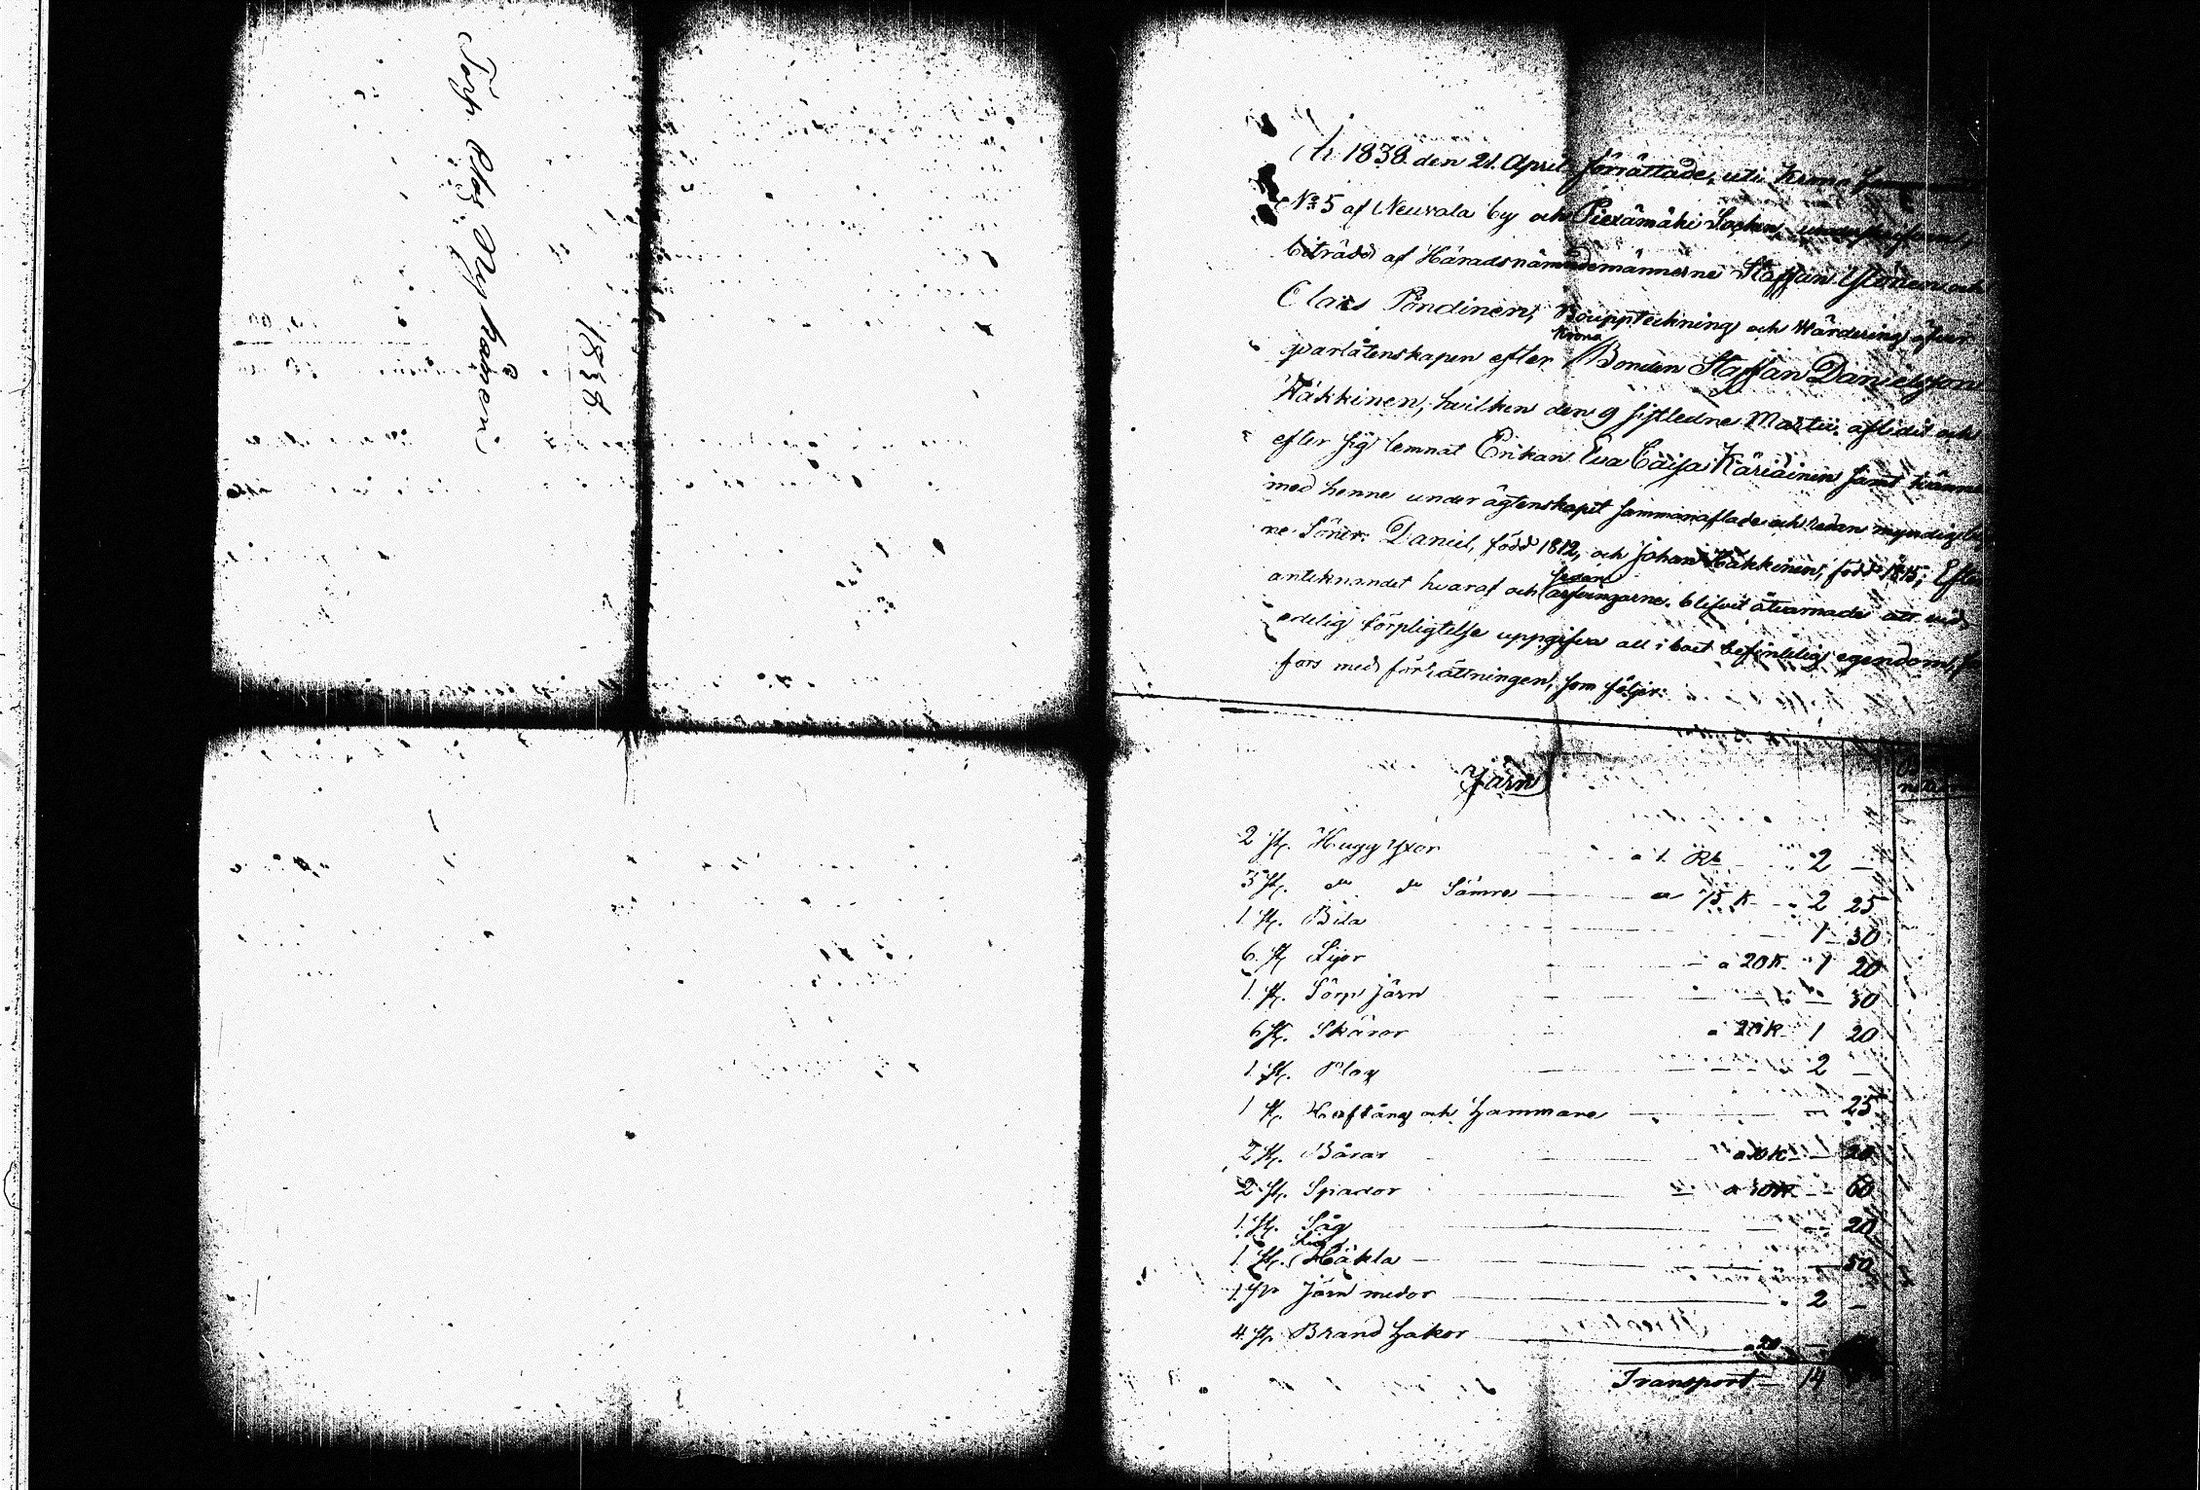 Torp Olof Nykänen
1838
År 1838 den 21. April förrättade, uti Krono
No 5 af Neuvola by och Piexämäki Socken, undertecknad,
biträdd af Häradsnämndemännerne Staffan Ylönen och
Claes Pöndinen, Bouppteckning och Wärdering öfver
qvarlåtenskapen efter Krono Bonden Staffan Danielsson
Häkkinen, hvilken den 9 sistledne Martii aflidit och
efter sig lemnat Enkan Eva Caisa Käriäinen samt
med henne under ägtenskapet sammanaflade och redan myndige
ne Söner: Daniel, född 1812, och Johan Häkkinen, född 1815; Efter
antecknandet hvaraf och sedan arfvingarne blifvit åtvarnade att vid
edelig förpligtelse uppgifva all i boet befintelig egendom,
fors med förrättningen, som följer:
Järn
2 st. Hugg Yxor a 1 Rb 2 —
3 st. do do Sämre a 75 K 2 25
1 st. Bila 1 30
6 st. Lijor a 20 K. 1 20
1 st. Sörp Järn — 30
6 st. Skäror a 20 K 1 20
1 st. Plog 2 —
1 st. Hoftång och Hammare — 25
2 st. Bårar a 10 K — 20
2 st. Spador — 60
1 st. Såg — 20
1 st. Häkla — 50
1 Järn medor 2 —
4 st. Brand Hakor a 20 —
Transport 14